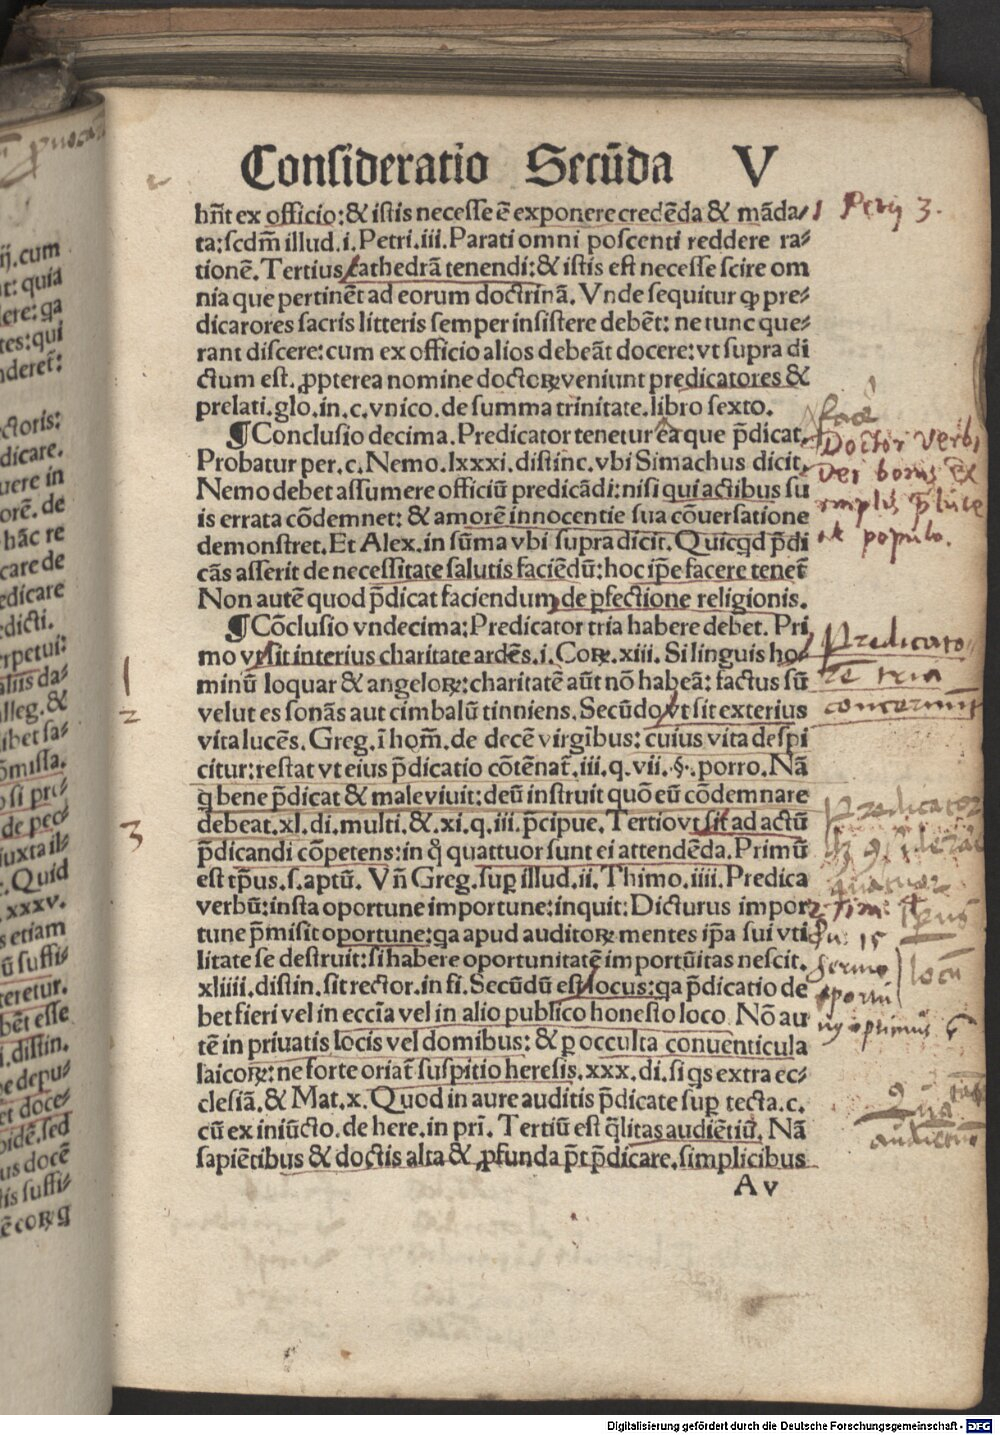 Consideratio Secūda V
hn̄t ex officio:& istis necesse ē exponere credēda & māda/
ta:scdm̄ illud.i.Petri.iii.Parati omni poscenti reddere ra⸗
tionē.Tertius cathedrā tenendi:& istis est necesse scire om
nia que pertinēt ad eorum doctrinā. Vnde sequitur ꝙ pre⸗
dicarores sacris litteris semper insistere debēt: ne tunc que⸗
rant discere:cum ex officio alios debeāt docere:vt supra di
ctum est.ꝓpterea nomine doctoꝝ veniunt predicatores &
prelati.glo.in.c.vnico.de summa trinitate.libro sexto.
¶Conclusio decima.Predicator tenetur ea que p̄dicat.
Probatur per.c.Nemo.lxxxi.distinc.vbi Simachus dicit.
Nemo debet assumere officiū predicādi:nisi qui actibus su
is errata cōdemnet: & amorē innocentie sua cōuersatione
demonstret.Et Alex.in sūma vbi supra dicit.Quicqd p̄di
cās asserit de necessitate salutis faciēdū:hoc ip̄e facere tenet̄
Non autē quod p̄dicat faciendum de ꝑfectione religionis.
¶Cōclusio vndecima:Predicator tria habere debet. Pri
mo vt sit interius charitate ardēs.i.Coꝝ.xiii.Si linguis ho⸗
minū loquar & angeloꝝ:charitatē aūt nō habeā: factus sū
velut es sonās aut cimbalū tinniens.Secūdo vt sit exterius
vita lucēs. Greg.ī hom̄.de decē virgibus: cuius vita despi
citur:restat vt eius p̄dicatio cōtēnat̄.iii.q.vii.§.porro.Nā
q̄ bene p̄dicat & male viuit:deū instruit quō eū cōdemnare
debeat.xl.di.multi.&.xi.q.iii.p̄cipue.Tertio vt sit ad actū
p̄dicandi cōpetens:in q̊ quattuor sunt ei attendēda.Primū
est tp̄us.s.aptū. Vn̄ Greg.suꝑ illud.ii.Thimo.iiii.Predica
verbū:insta oportune importune:inquit:Dicturus impor
tune p̄misit oportune:qa apud auditoꝝ mentes ip̄a sui vti
litate se destruit:si habere oportunitatē importūitas nescit.
xliiii.distin.sit rector.in fi.Secūdū est locus:qa p̄dicatio de
bet fieri vel in eccīa vel in alio publico honesto loco Nō au
tē in priuatis locis vel domibus: & ꝑ occulta conuenticula
laicoꝝ:ne forte oriat̄ suspitio heresis.xxx.di.si qs extra ec⸗
clesiā.& Mat.x.Quod in aure auditis p̄dicate suꝑ tecta.c.
cū ex iniūcto.de here.in pri. Tertiū est q̄litas audiētiū. Nā
sapiētibus & doctis alta & ꝓfunda p̄t p̄dicare.simplicibus
A v
1 Petri 3.
face
Doctor verbi
Dei bonus
populo.
Predicato
re tria
concernunt
Predicator
quatuor
2 Tim: 4
15
Sermo
locū
1
2
3
ij.cum
t: quia
lere:ga
tes:qui
nderet̄:
ctoris:
dicare.
uere in
orē. de
hāc re
care de
edicare
edicti.
erpetui:
aliis da⸗
lleg. &
libet sa⸗
ōmissa.
o si pri⸗
de pec⸗
iuxta il⸗
. Quid
.xxxv.
s etiam
ū suffi⸗
teretur.
bēt esse
i.distin.
e depu⸗
et doce⸗
pidē.sed
us docē
tis suffi⸗
ē coꝝ q
Digitalisierung gefördert durch die Deutsche Forschungsgemeinschaft - DFG